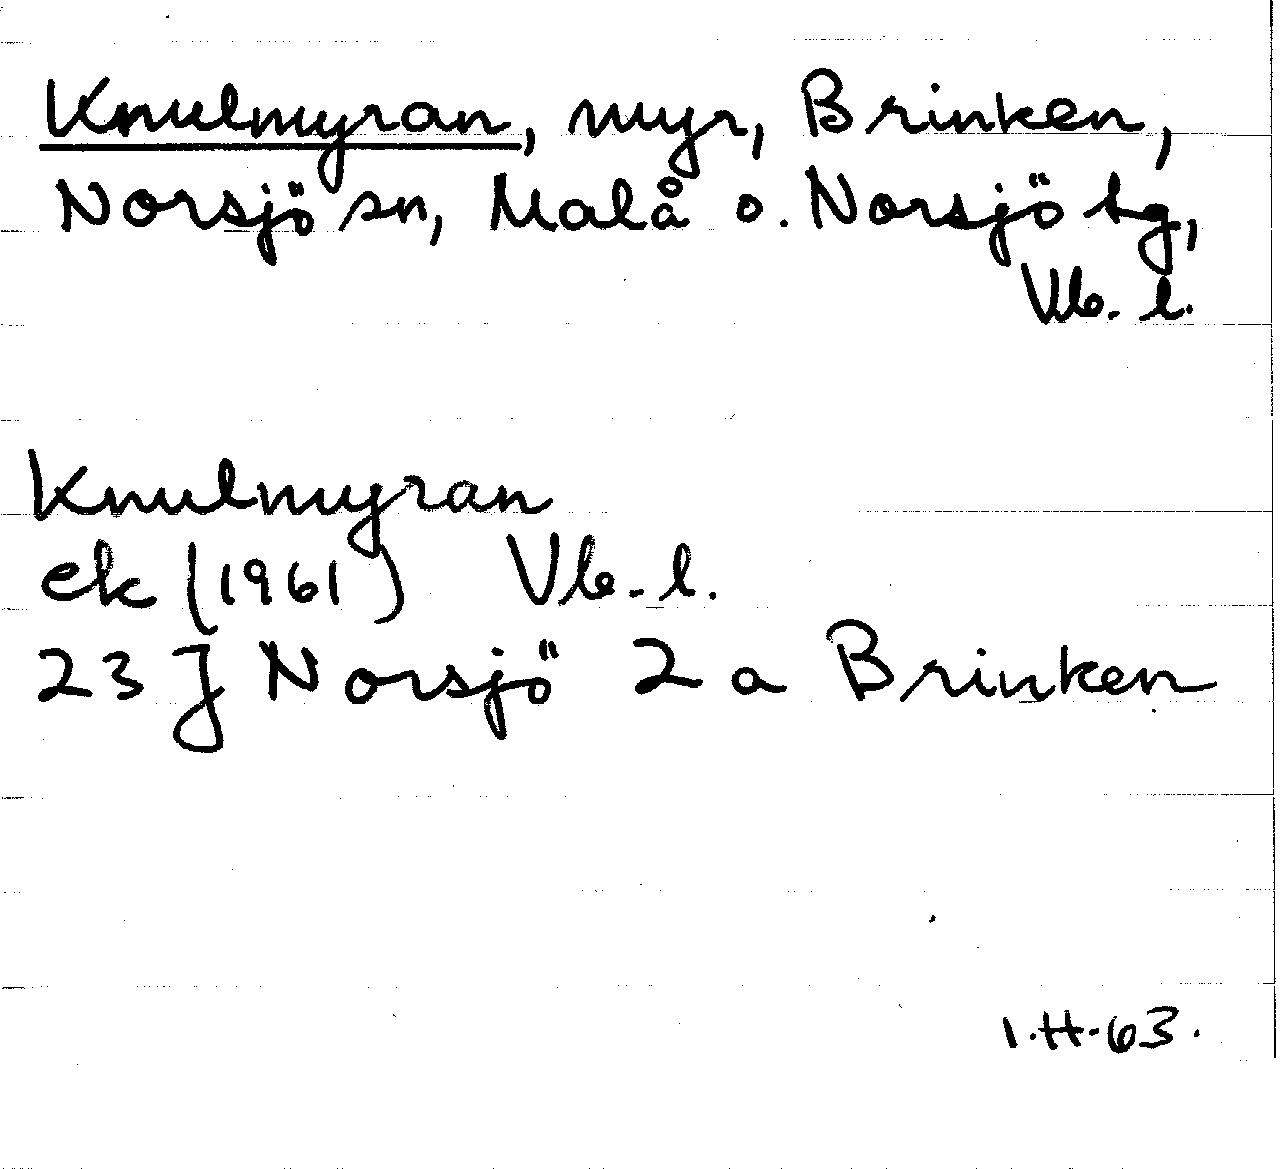 Knulmyran, myr, Brinken,
Norsjö sn, Malå o. Norsjö tg,
Vb. l.
Knulmyran
ek (1961) Vb. l.
23 J Norsjö 2 a Brinken
I.H-63.